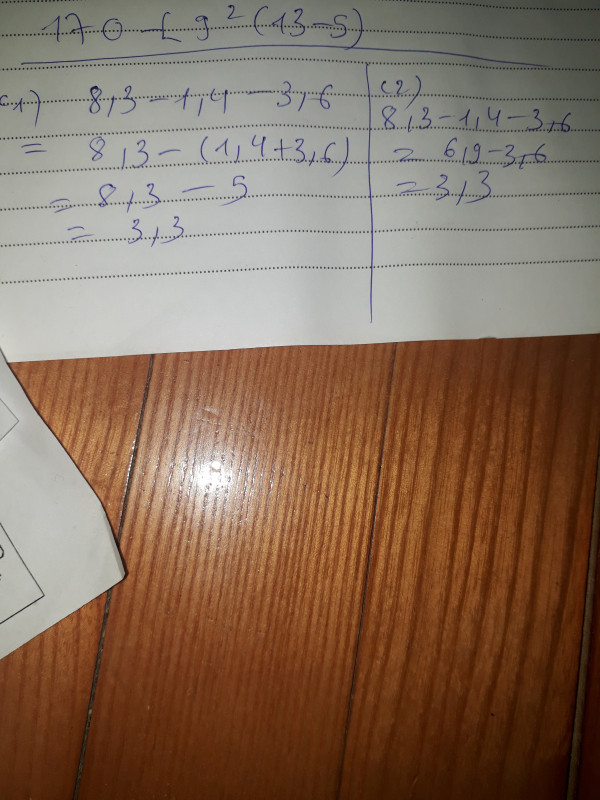 170 - [ 9² (13-5)
(1) 8,3-1,4-3,6
= 8,3-(1,4+3,6)
= 8,3 - 5
= 3,3
(2)
8,3-1,4-3,6
= 6,9-3,6
= 3,3